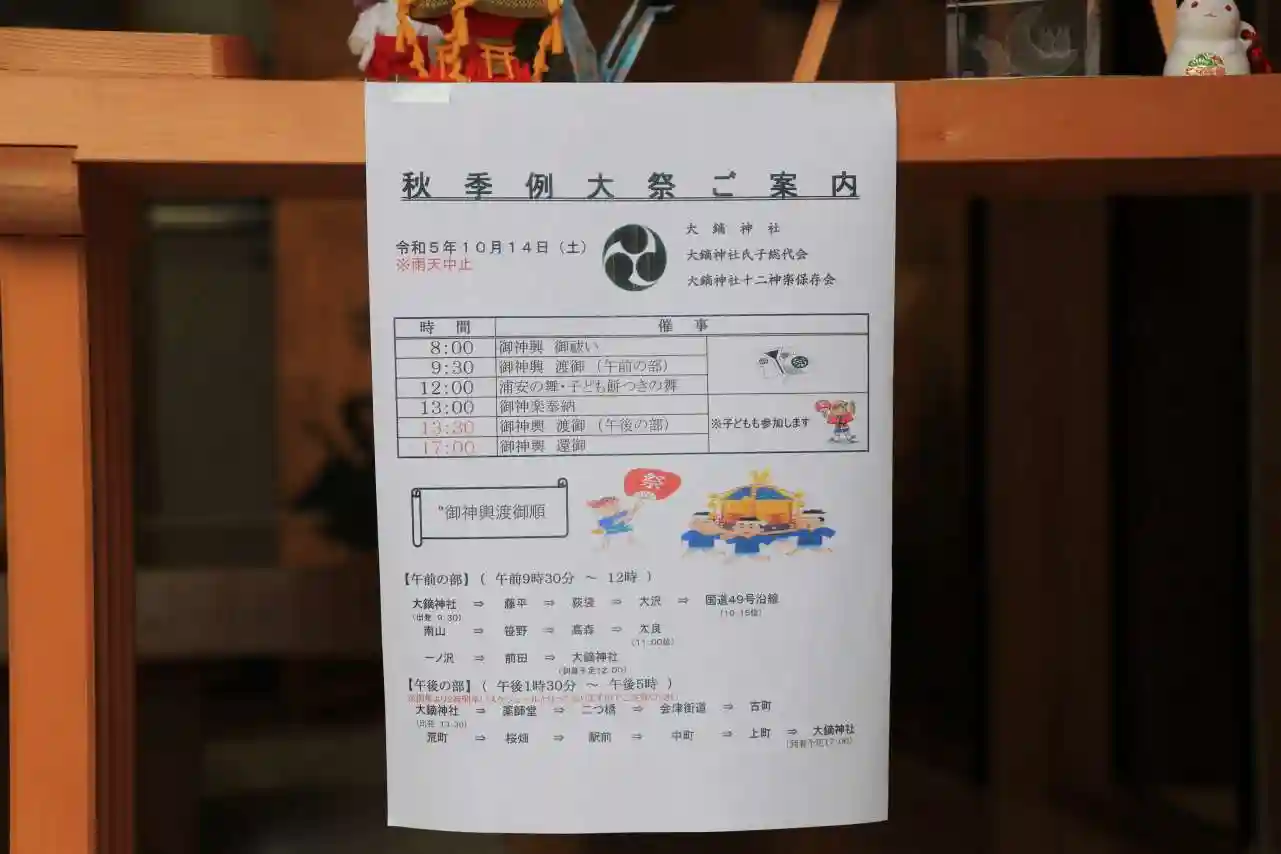 秋季例大祭ご案内
令和5年10月14日（土）
※雨天中止
大鏑神社
大鏑神社氏子総代会
大鏑神社十二神楽保存会
時間 催事
8:00 御神輿 御祓い
9:30 御神輿 渡御（午前の部）
12:00 浦安の舞・子ども餅つきの舞
13:00 御神楽奉納
13:30 御神輿 渡御（午後の部）
17:00 御神輿 還御
※子どもも参加します
"御神輿渡御順
祭
【午前の部】（ 午前9時30分 ～ 12時 ）
大鏑神社 ⇒ 藤平 ⇒ 荻袋 ⇒ 大沢 ⇒ 国道49号沿線
（出発 9:30） （10:15頃）
南山 ⇒ 笹野 ⇒ 高森 ⇒ 太良
（11:00頃）
一ノ沢 ⇒ 前田 ⇒ 大鏑神社
（到着予定12:00）
【午後の部】（ 午後1時30分 ～ 午後5時 ）
大鏑神社 ⇒ 薬師堂 ⇒ 二つ橋 ⇒ 会津街道 ⇒ 古町
（出発 13:30）
荒町 ⇒ 桜畑 ⇒ 駅前 ⇒ 中町 ⇒ 上町 ⇒ 大鏑神社
（到着予定17:00）